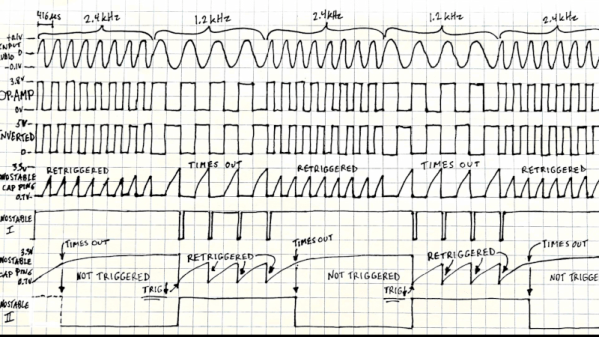 416µs 2.4 kHz 1.2 kHz 2.4 kHz 1.2 kHz 2.4 kHz
+0.1V
INPUT 0
-0.1V
3.8V
OP-AMP
0V
5V
INVERTED
0
3.5V
RETRIGGERED TIMES OUT RETRIGGERED TIMES OUT RETRIGGERED
CAP PIN6
0.7V
I
TIMES OUT TIMES OUT TIMES OUT
3.5V
RETRIGGERED RETRIGGERED
CAP PIN6
NOT TRIGGERED NOT TRIGGERED NOT
0.7V
TRIG TRIG
II